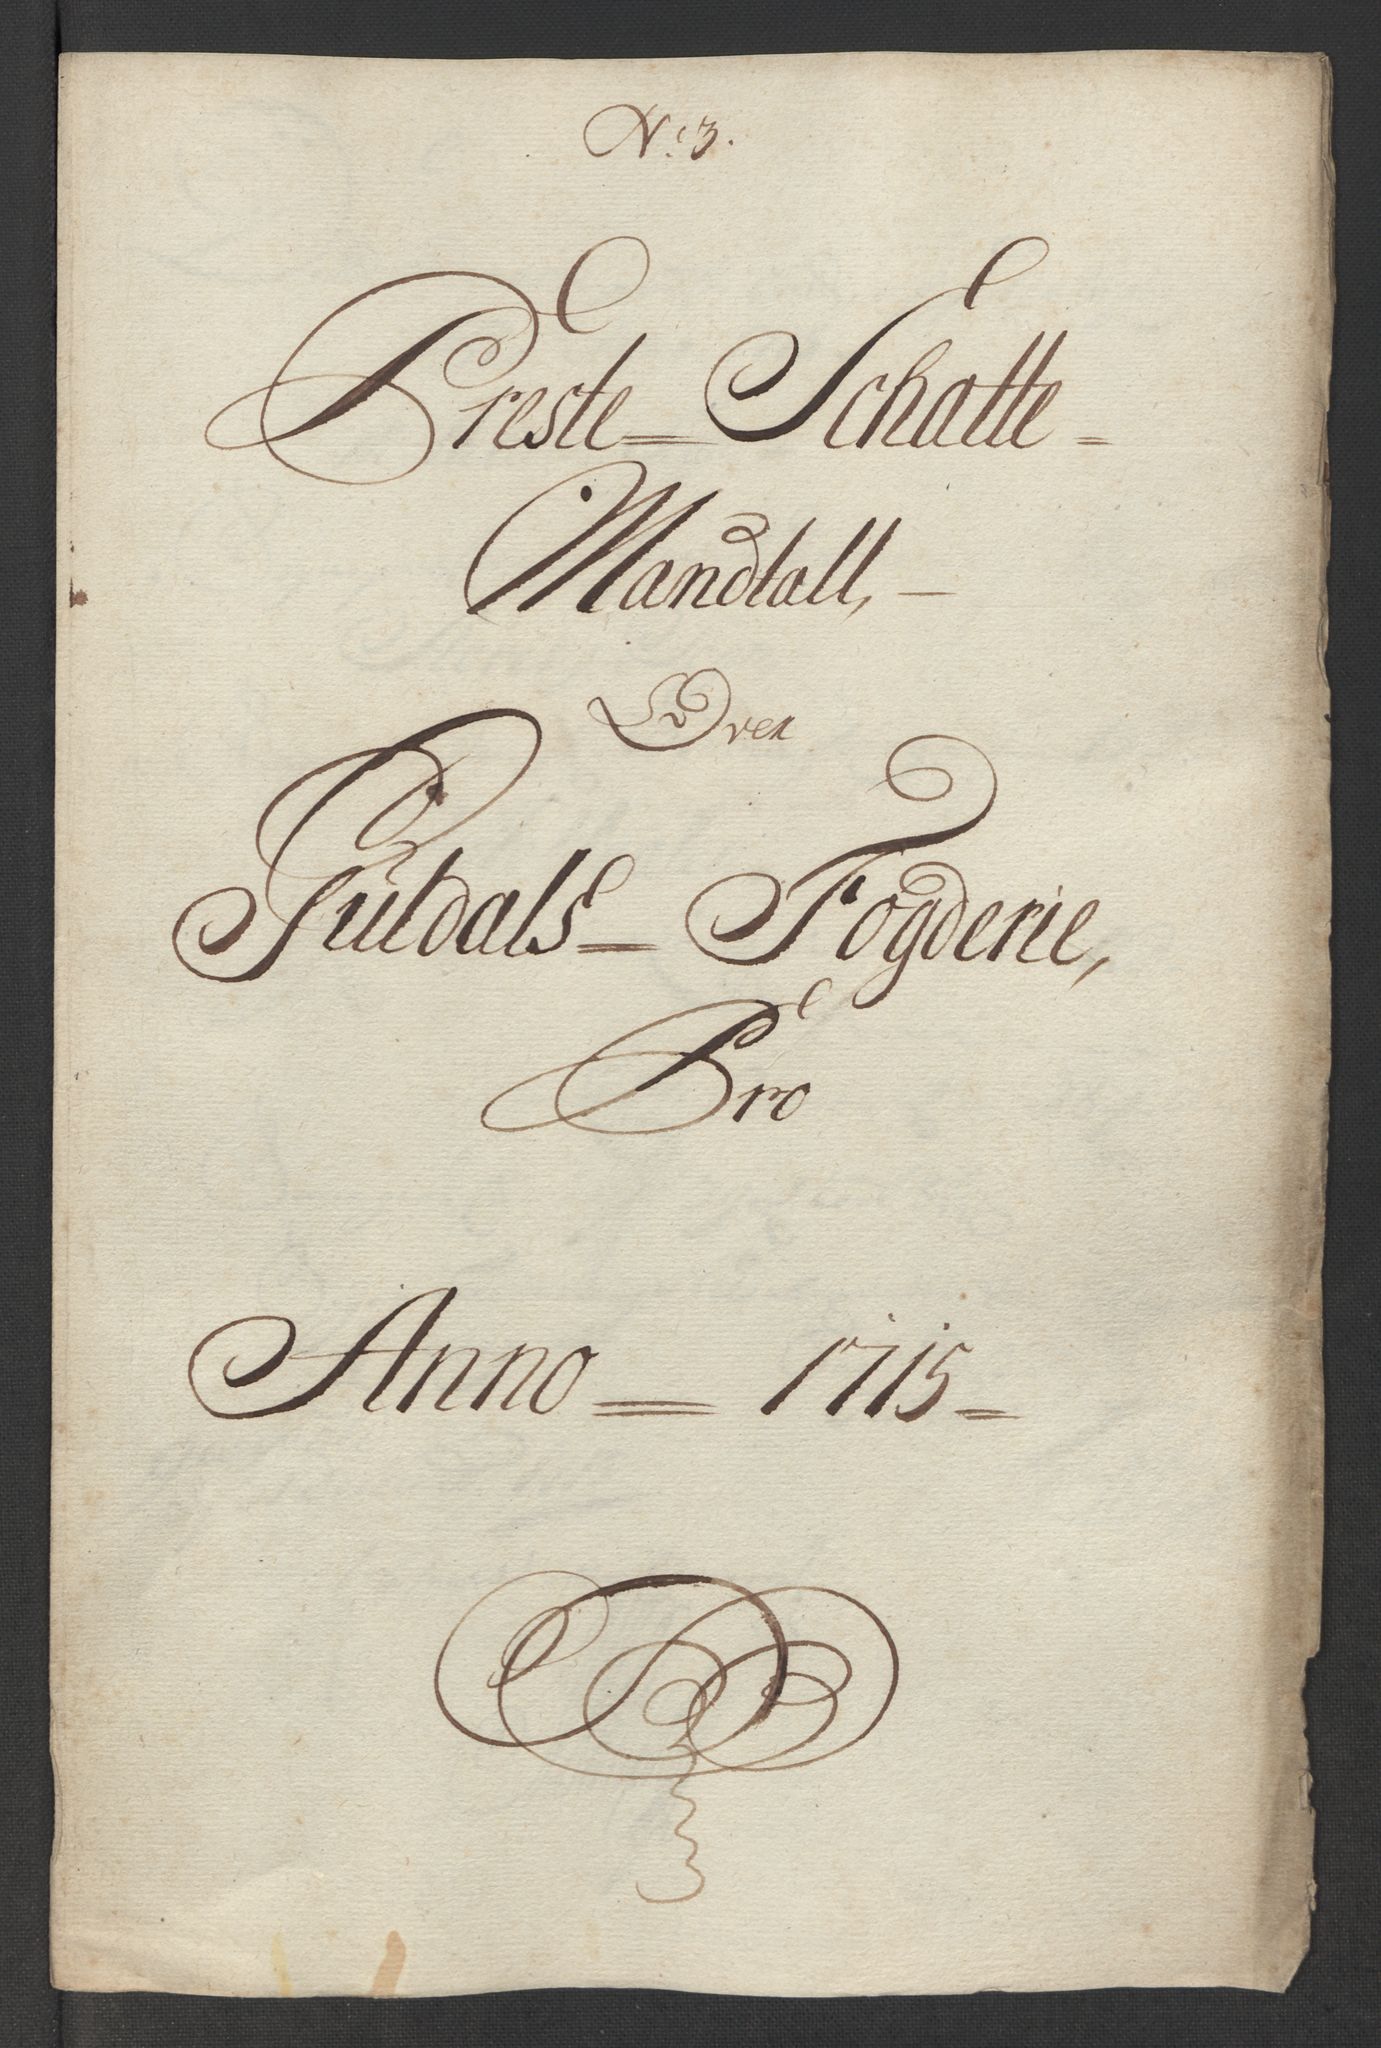 No: 3.
Preste= Schatte=
Mandtall,
Over
Guldals= Fogderie,
Pro
Anno= 1715=